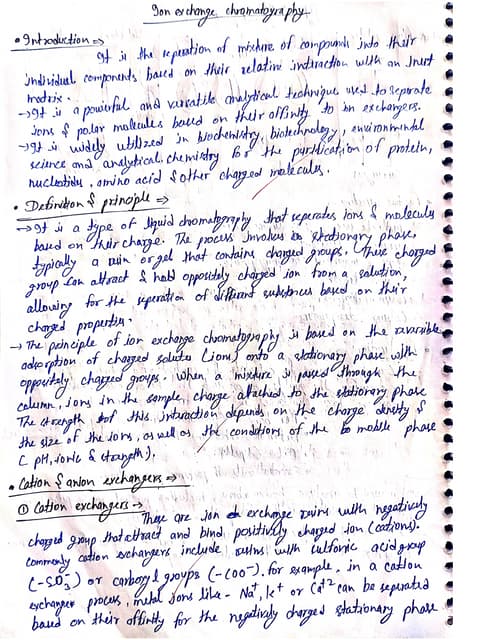 Ion exchange chromatography
• Introduction ⇒
It is the seperation of mixture of compounds into their
individual components based on their relative intraction with an Inert
matrix.
→ It is a powerful and varsatile analytical technique used to seperate
ions & polar molecules based on their affinity to ion exchangers.
→ It is widely utilized in biochemistry, biotechnology, environmental
science and analytical chemistry for the purification of protein,
nucleotides, amino acid & other charged molecules.
• Definition & principle ⇒
→ It is a type of liquid chomatography that seperates ions & molecules
based on their charge. The process involves a stationary phase,
typically a resin or gel that contains charged groups. These charged
group can attract & hold oppositely charged ion from a solution,
allowing for the seperation of different substances based on their
charged properties.
→ The principle of ion exchange chromatography is based on the reversible
adsorption of charged solute (ions) onto a stationary phase with
oppositely charged groups. When a mixture is passed through the
column, ions in the sample, charge attached to the stationary phase
The strength of this interaction depends on the charge density &
the size of the ions, as well as the conditions of the mobile phase
( pH, ionic & strength).
• Cation & anion exchangers ⇒
① Cation exchangers →
These are ion exchange resins with negatively
charged group that attract and bind positively charged ion (cations).
commonly cation exchangers include resins with sulfonic acid group
(-SO₃⁻) or carboxyl groups (-COO⁻). for example, in a cation
exchanger process, metal ions like - Na⁺, K⁺ or Ca⁺² can be seperated
based on their affinity for the negatively charged stationary phase